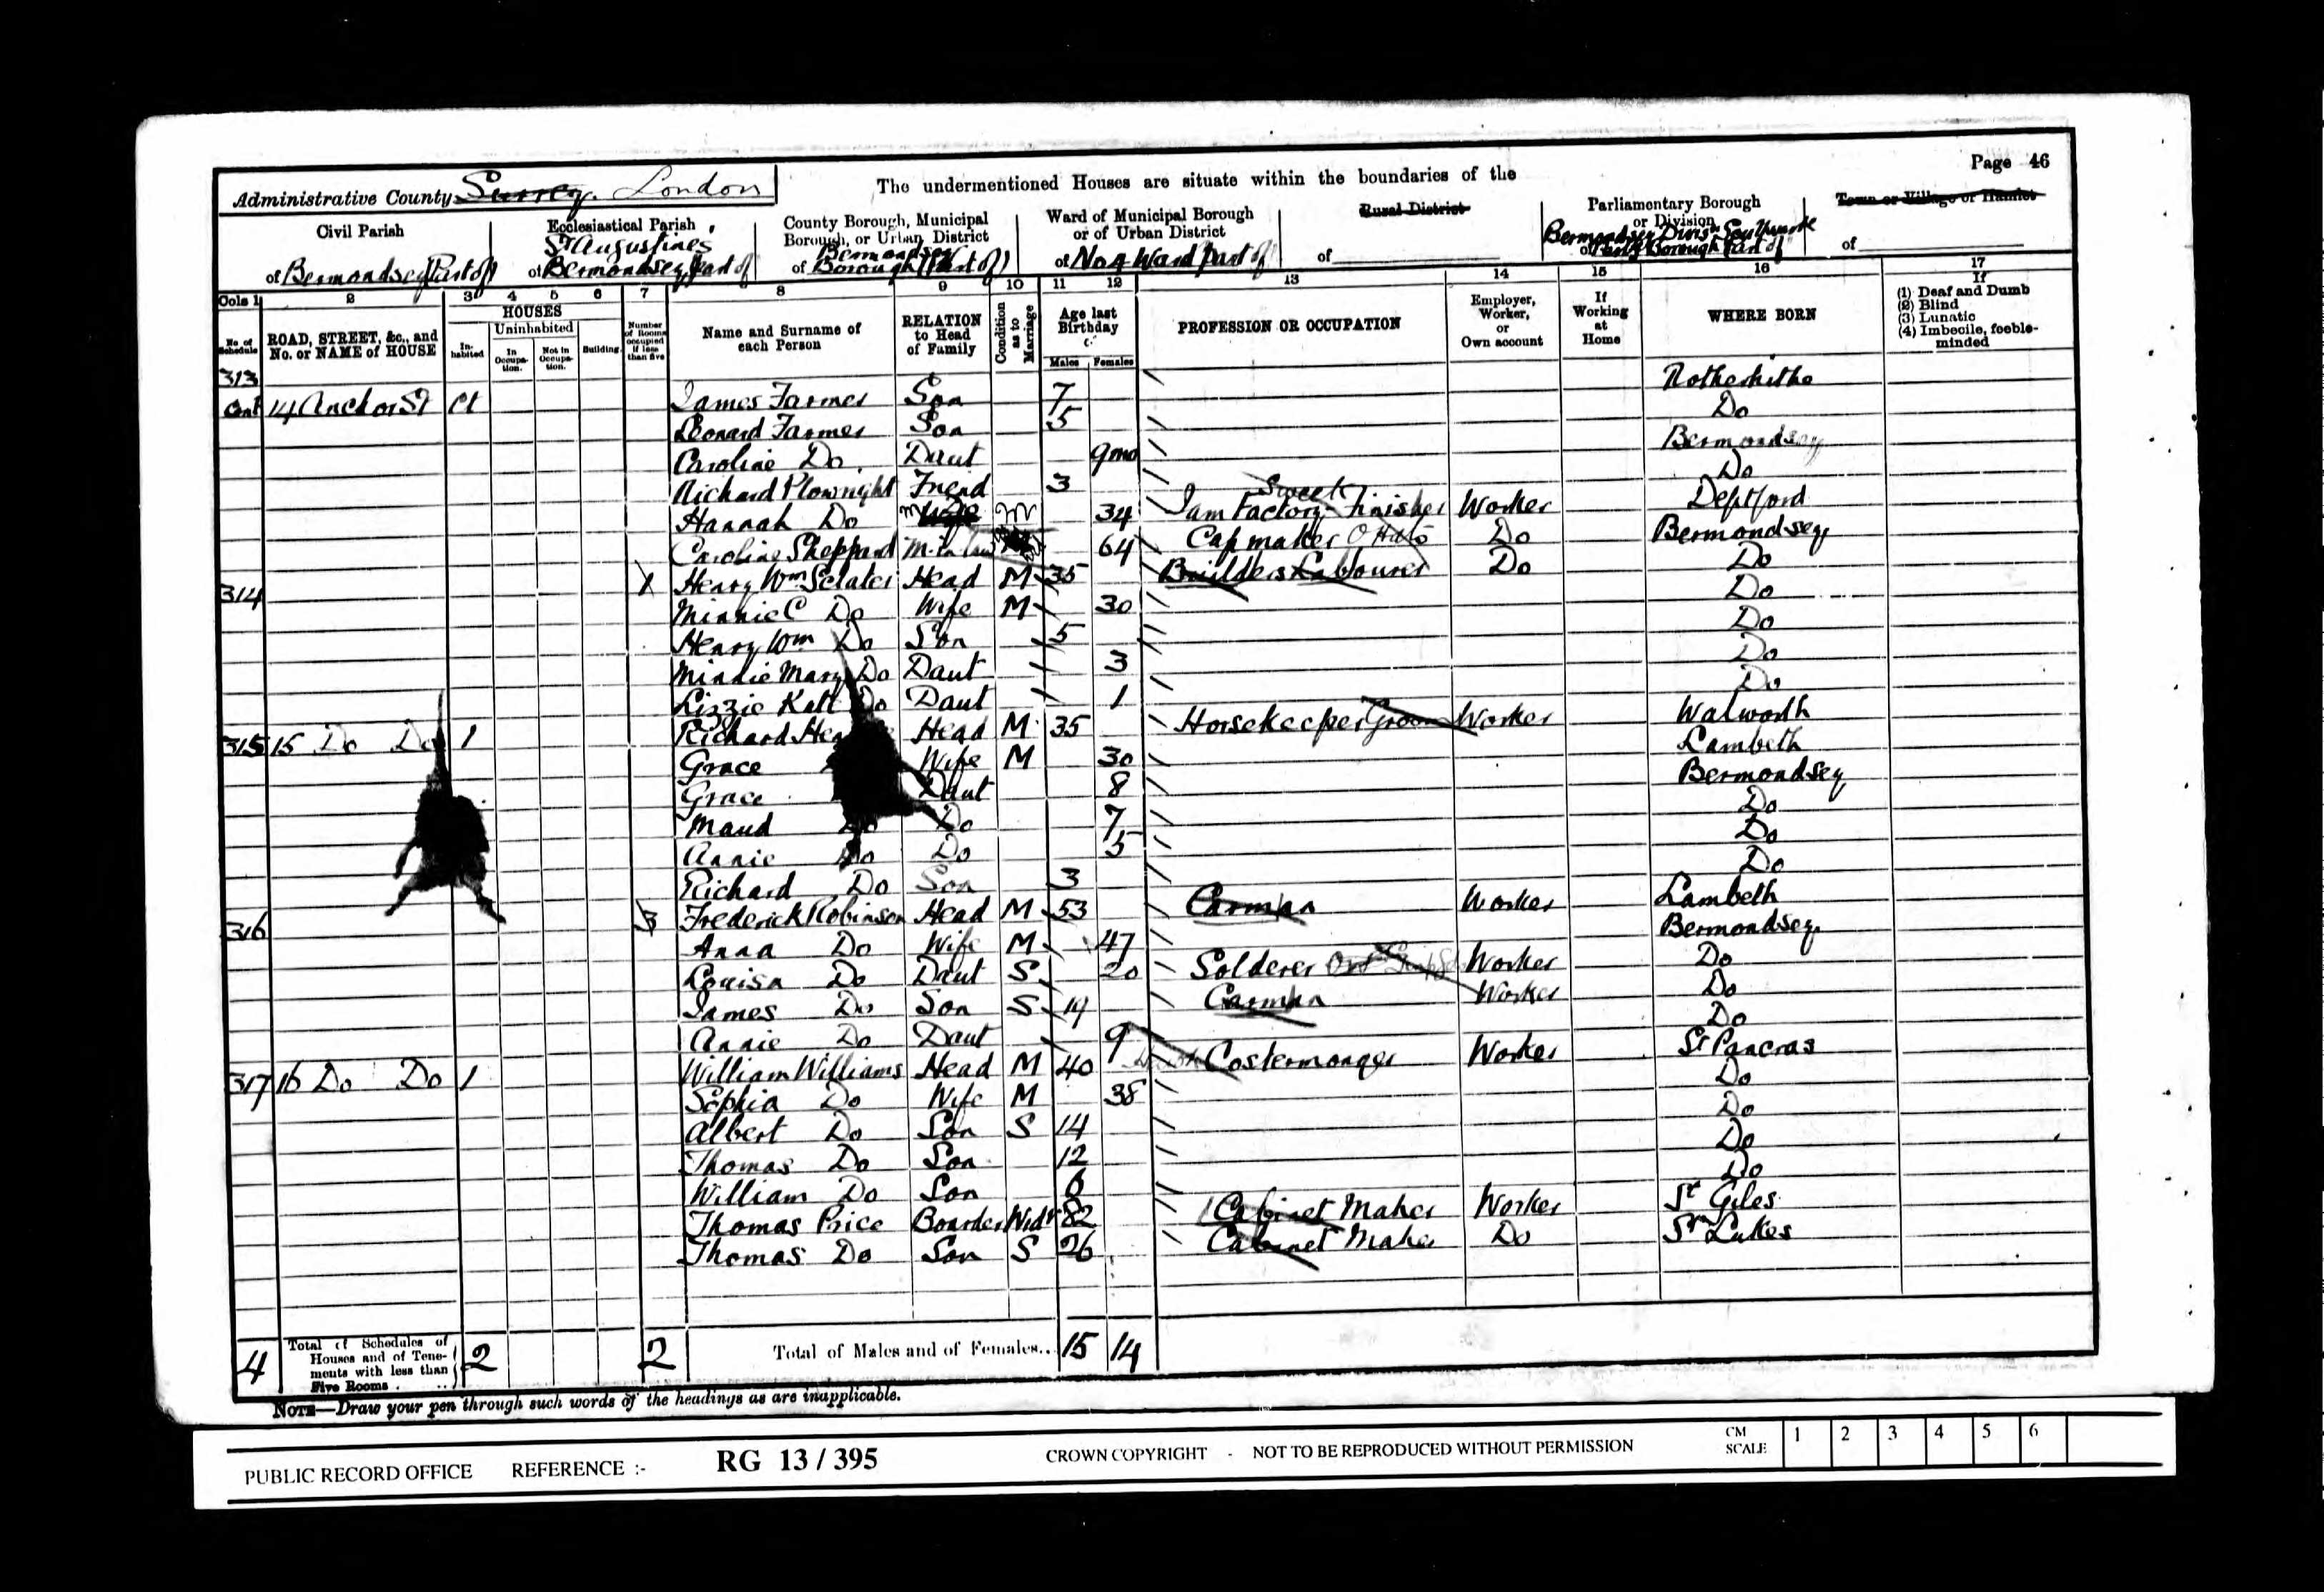 Page 46
Administrative County Surrey. London
The undermentioned Houses are situate within the boundaries of the
Civil Parish
of Bermondsey (Part of)
Ecclesiastical Parish
St Augustines
of Bermondsey, part of
County Borough, Municipal
Borough, or Urban District
Bermondsey
of Borough (Part of)
Ward of Municipal Borough
or of Urban District
of No 4 Ward part of
Rural District
of
Parliamentary Borough
or Division
Bermondsey Divisn Southwark
of Parly Borough Part of
Town or Village or Hamlet
of
Cols 1 2 3 4 5 6 7 8 9 10 11 12 13 14 15 16 17
No. of Schedule
ROAD, STREET, &c., and No. or NAME of HOUSE
HOUSES
Inhabited
Uninhabited
In Occupation.
Not in Occupation.
Building.
Number of Rooms occupied if less than five
Name and Surname of each Person
RELATION to Head of Family
Condition as to Marriage
Age last Birthday
Males Females
PROFESSION OR OCCUPATION
Employer, Worker, or Own account
If Working at Home
WHERE BORN
If
(1) Deaf and Dumb
(2) Blind
(3) Lunatic
(4) Imbecile, feeble-minded
313 Cont 14 Anchor St Ct James Farmer Son 7 Rotherhithe
Leonard Farmer Son 5 Do
Caroline Do. Daut 9mo Bermondsey
Richard Plowright Friend 3 Do
Hannah Do Wife 34 Jam Factory Sweet Finisher Worker Deptford
Caroline Sheppard M. in law 64 Cap maker Do Bermondsey
314 Henry Wm Sclater Head M 35 Builders Labourer Do Do
Minnie C Do Wife M 30 Do
Henry Wm Do Son 5 Do
Minnie Mary Do Daut 3 Do
Lizzie Kate Do Daut 1 Do
315 15 Do Do 1 Richard Head M 35 Horsekeeper Groom Worker Walworth
Grace Wife M 30 Lambeth
Grace Daut 8 Bermondsey
Maud Do Do 7 Do
Annie Do Do 5 Do
Richard Do Son 3 Do
316 3 Frederick Robinson Head M 53 Carman Worker Lambeth
Anna Do Wife M 47 Bermondsey
Louisa Do Daut S 20 Solderer Worker Do
James Do Son S 19 Carman Worker Do
Annie Do Daut 9 Do
317 16 Do Do 1 William Williams Head M 40 Costermonger Worker St Pancras
Sophia Do Wife M 38 Do
Albert Do Son S 14 Do
Thomas Do Son 12 Do
William Do Son 6 Do
Thomas Price Boarder Widr 82 Cabinet Maker Worker St Giles
Thomas Do Son S 26 Cabinet Maker Do St Lukes
4 Total of Schedules of Houses and of Tenements with less than Five Rooms 2 2 Total of Males and of Females.. 15 14
NOTE—Draw your pen through such words of the headings as are inapplicable.
PUBLIC RECORD OFFICE REFERENCE :- RG 13 / 395 CROWN COPYRIGHT - NOT TO BE REPRODUCED WITHOUT PERMISSION CM SCALE 1 2 3 4 5 6